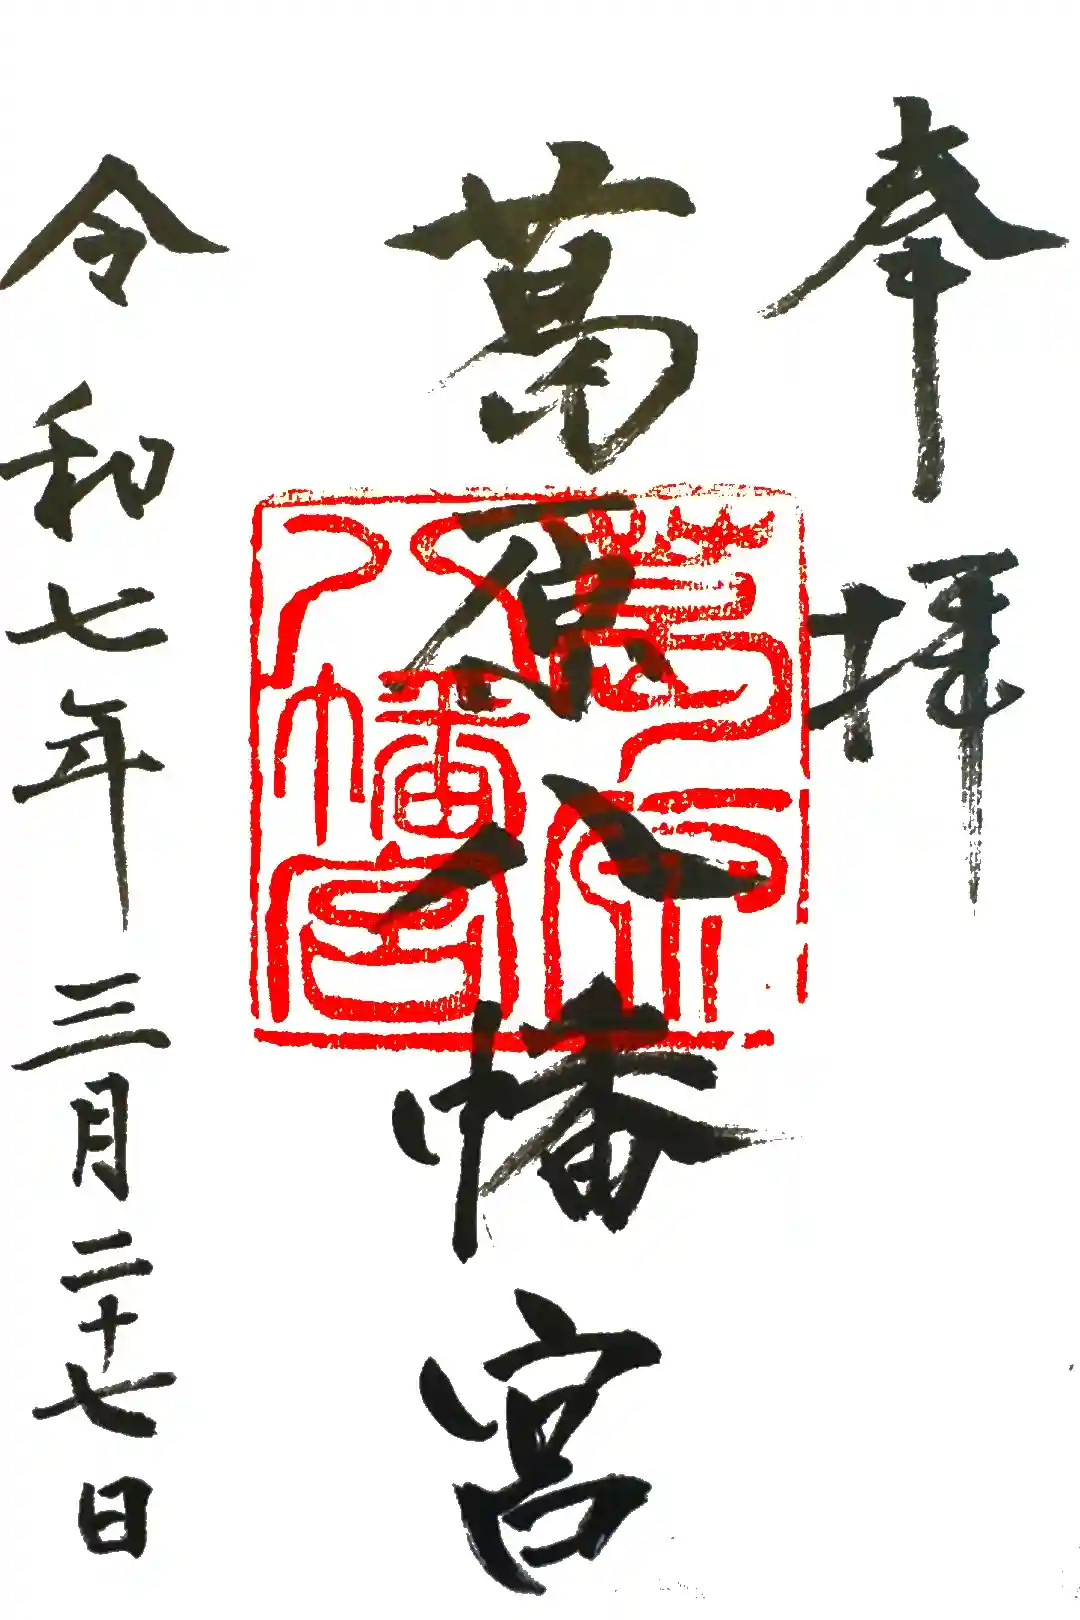 奉拝
葛原八幡宮
令和七年三月二十七日
葛原
八幡宮